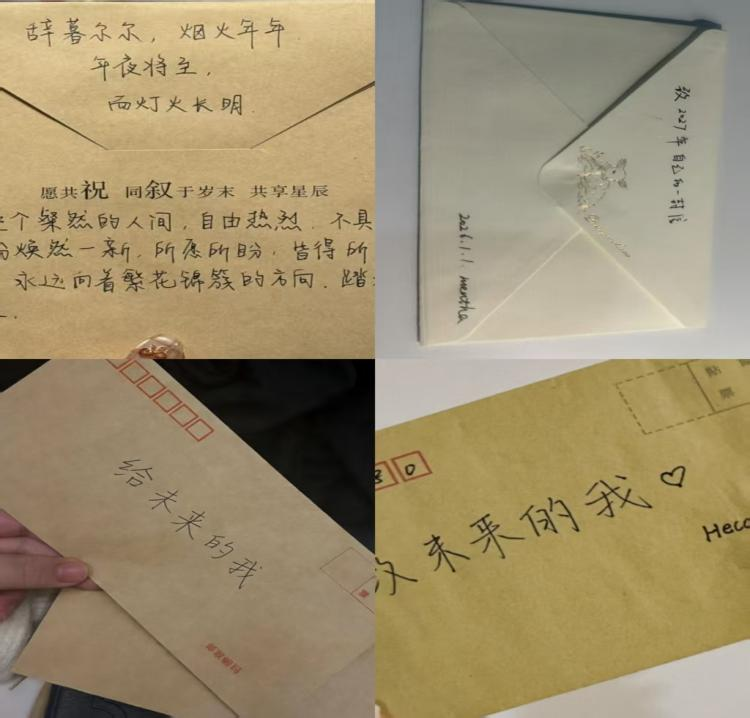 辞暮尔尔，烟火年年
年夜将至，
而灯火长明.
愿共祝 同叙于岁末 共享星辰
个粲然的人间，自由热烈.不具
焕然一新.所愿所盼，皆得所
永远向着繁花锦簇的方向.踏
致2027年自己的一封信
2026.1.1 mentha
给未来的我
邮政编码
0
未来的我♡
Hecc